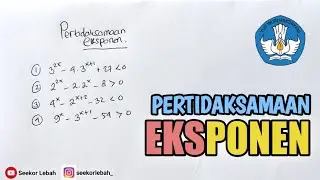 Pertidaksamaan
eksponen.
① 3^2x - 4.3^x+1 + 27 < 0
② 2^2x - 2.2^x - 8 > 0
③ 4^x - 2^x+2 - 32 < 0
④ 9^x - 3^x+1 - 54 > 0
PERTIDAKSAMAAN
EKSPONEN
Seekor Lebah
seekorlebah_